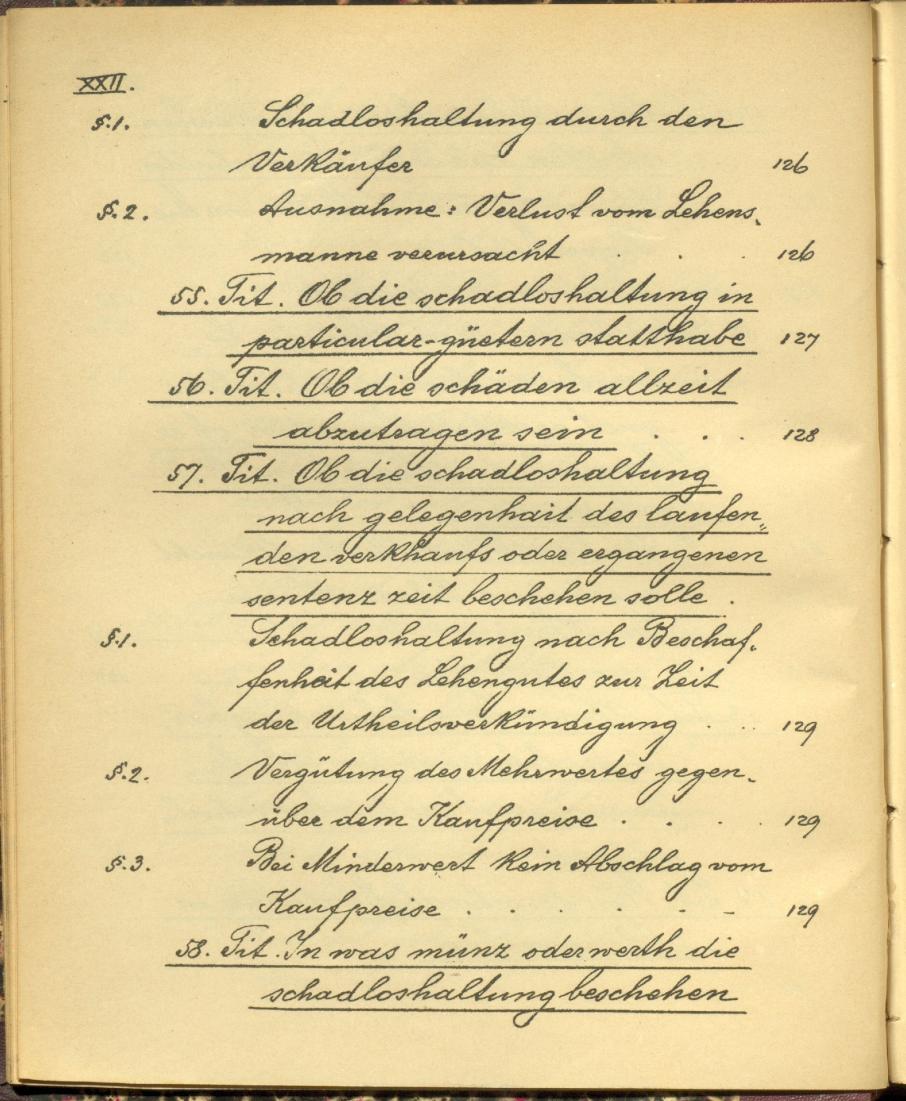 XXII.
§.1. Schadloshaltung durch den
Verkäufer 126
§.2. Ausnahme: Verlust vom Lehens-
manne verursacht . . . 126
55. Tit. Ob die schadloshaltung in
particular-güetern statthabe 127
56. Tit. Ob die schäden allzeit
abzutragen sein . . . 128
57. Tit. Ob die schadloshaltung
nach gelegenhait des laufen=
den verkhaufs oder ergangenen
sentenz zeit beschehen solle .
§.1. Schadloshaltung nach Beschaf-
fenheit des Lehengutes zur Zeit
der Urtheilsverkündigung . . . 129
§.2. Vergütung des Mehrwertes gegen-
über dem Kaufpreise . . . . 129
§.3. Bei Minderwert kein Abschlag vom
Kaufpreise . . . . . . 129
58. Tit. In was münz oder werth die
schadloshaltung beschehen